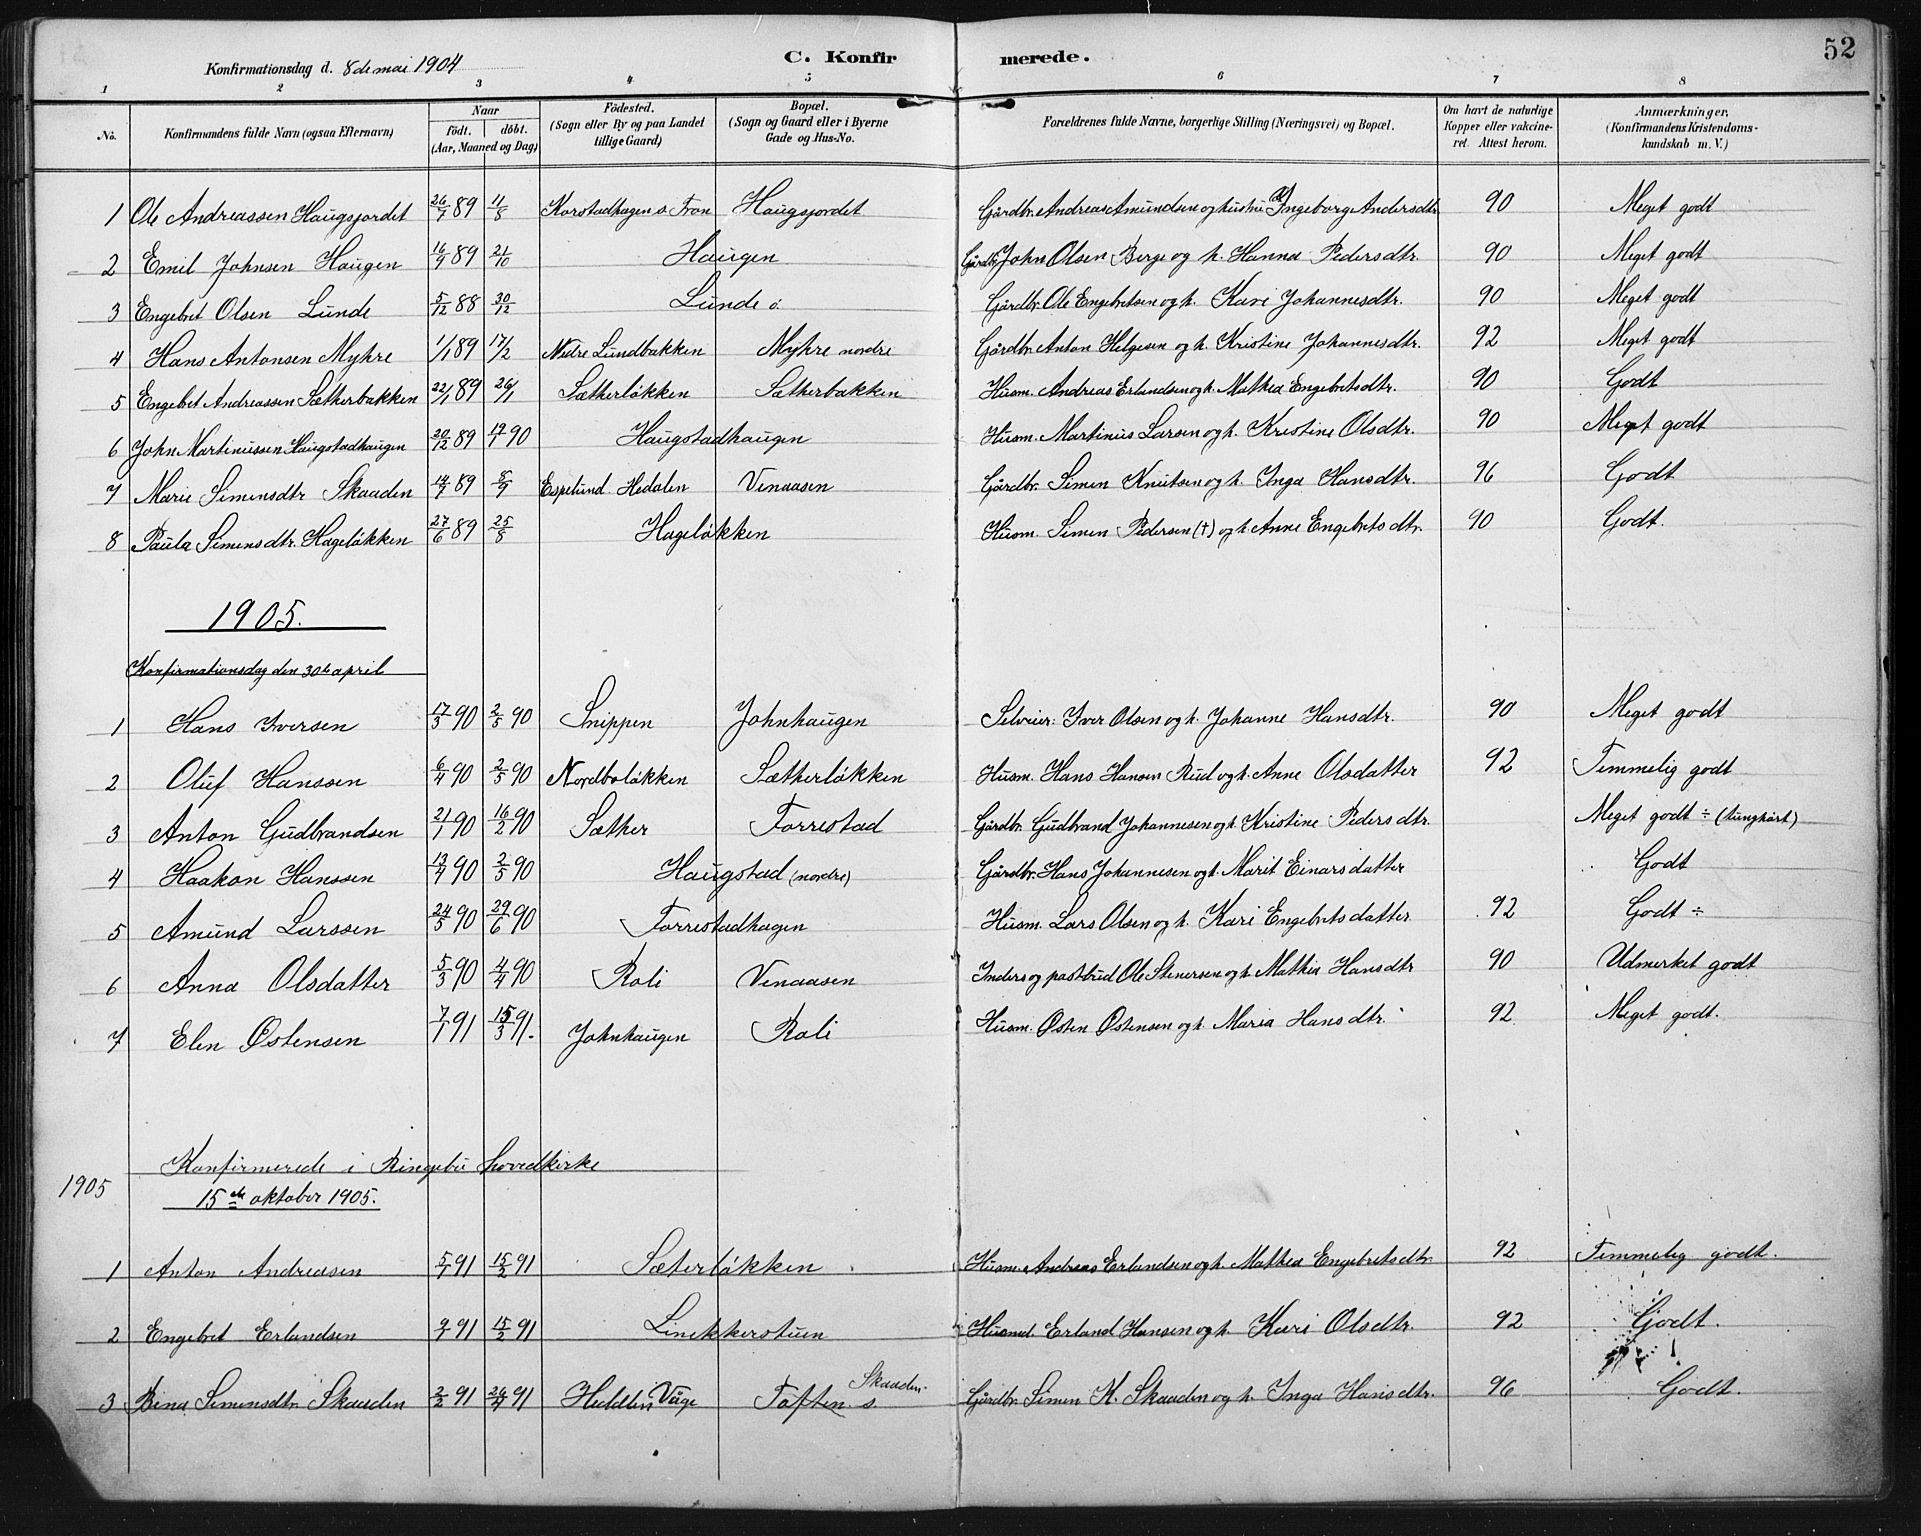 52
Konfirmationsdag d. 8de mai 1904 C. Konfirmerede.
1 2 3 4 5 6 7 8
No. Konfirmandens fulde Navn (ogsaa Efternavn) Naar født. døbt. (Aar, Maaned og Dag) Födested. (Sogn eller By og paa Landet tillige Gaard) Bopæl. (Sogn og Gaard eller i Byerne Gade og Hus-No. Forældrenes fulde Navne, borgerlige Stilling (Næringsvei) og Bopæl. Om havt de naturlige Kopper eller vakcineret. Attest herom. Anmærkninger. (Konfirmandens Kristendomskundskab m. V.)
1 Ole Andreassen Haugsjordet 26/7 89 11/8 Korstadhagen s. Fron Haugsjordet Gårdbr. Andreas Amundsen og hustru Ingeborg Andersdtr. 90 Meget godt
2 Emil Johnsen Haugen 16/9 89 21/10 Haugen Gårdbr. John Olsen Berge og h. Hanna Pedersdtr. 90 Meget godt
3 Engebret Olsen Lunde 5/12 88 30/12 Lunde ø. Gårdbr. Ole Engebretsen og h. Kari Johannesdtr. 90 Meget godt
4 Hans Antonsen Myhre 1/1 89 17/2 Nedre Lundbakken Myhre nordre Gårdbr. Anton Helgesen og h. Kristine Johannesdtr. 92 Meget godt
5 Engebet Andreassen Sætherbakken 22/1 89 26/1 Sætherløkken Sætherbakken Husm. Andreas Erlandsen og h. Mathea Engebretsdtr. 90 Godt
6 John Martinussen Haugstadhaugen 20/12 89 19/1 90 Haugstadhaugen Husm. Martinus Larsen og h. Kristine Olsdtr. 90 Meget godt
7 Marie Simensdtr Skaaden 14/7 89 8/9 Espelund Hedalen Venaasen Gårdbr. Simen Knutsen og h. Inga Hansdtr. 96 Godt
8 Paula Simensdtr. Hageløkken 27/6 89 25/8 Hageløkken Husm. Simen Pedersen (†) og h. Anne Engebretsdtr. 90 Godt.
1905.
Konfirmationsdag den 30te april
1 Hans Iversen 17/3 90 2/5 90 Snippen Johnhaugen Selveier: Iver Olsen og h. Johanne Hansdtr. 90 Meget godt
2 Oluf Hanssen 6/4 90 2/5 90 Nordboløkken Sætherløkken Husm. Hans Hansen Rud og h. Anne Olsdatter 92 Temmelig godt
3 Anton Gudbrandsen 21/1 90 16/2 90 Sæther Forrestad Gårdbr. Gudbrand Johannesen og h. Kristine Pedersdtr. Meget godt ÷ (tunghørt)
4 Haakon Hanssen 13/4 90 2/5 90 Haugstad (nordre) Gårdbr. Hans Johannesen og h. Marit Einarsdatter Godt
5 Amund Larssen 24/5 90 29/6 90 Forrestadhagen Husm. Lars Olsen og h. Kari Engebretsdatter 92 Godt ÷
6 Anna Olsdatter 5/3 90 4/4 90 Roli Venaasen Inders og postbud Ole Stenersen og h. Mathia Hansdtr 90 Udmerket godt
7 Elen Østensen 7/1 91 15/3 91. Johnhaugen Roli Husm. Østen Østensen og h. Maria Hansdtr. 92 Meget godt.
Konfirmerede i Ringebu hovedkirke
1905 15de oktober 1905.
1 Anton Andreasen 5/1 91 15/2 91 Sæterløkken Husm. Andreas Erlandsen og h. Mathea Engebretsdtr. 92 Temmelig godt.
2 Engebret Erlandsen 2/1 91 15/2 91 Linekkerstuen Husmd. Erland Hansen og h. Kari Olsdtr. 92 Godt.
3 Bina Simensdtr. Skaaden 2/2 91 26/4 91 Heldlen, Våge Toften s. Skaaden Gårdbr. Simen K. Skaaden og h. Inga Hansdtr. 96 Godt.